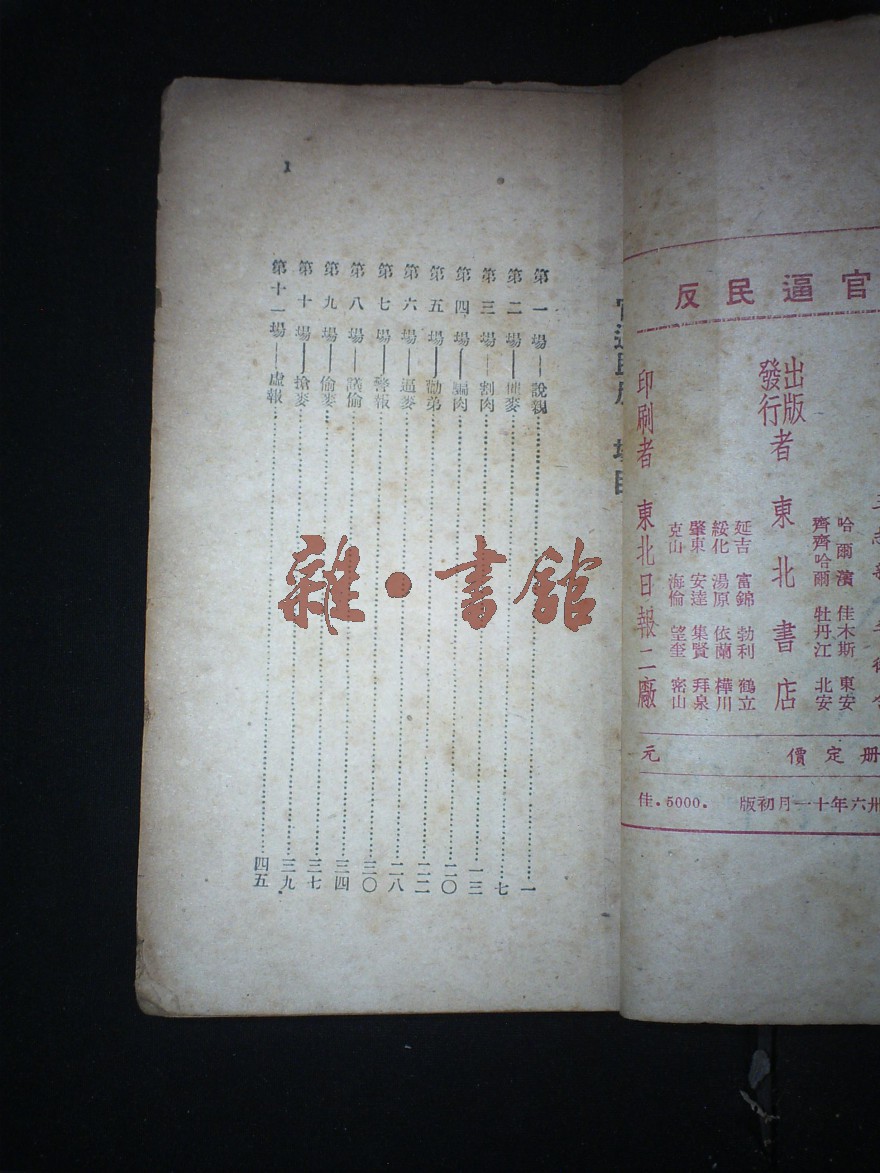 官逼民反
出版
發行者 東北書店
哈爾濱 佳木斯 東安
齊齊哈爾 牡丹江 北安
延吉 富錦 勃利 鶴立
綏化 湯原 依蘭 樺川
肇東 安達 集賢 拜泉
克山 海倫 望奎 密山
印刷者 東北日報二廠
册定價 元
卅六年十一月初版 佳.5000.
第一場——說親……一
第二場——麥……七
第三場——割肉……一三
第四場——騙肉……二〇
第五場——勸弟……二二
第六場——逼麥……二八
第七場——警報……三〇
第八場——議偷……三四
第九場——偷麥……三七
第十場——搶麥……三九
第十一場——虛報……四五
1
雜·書館